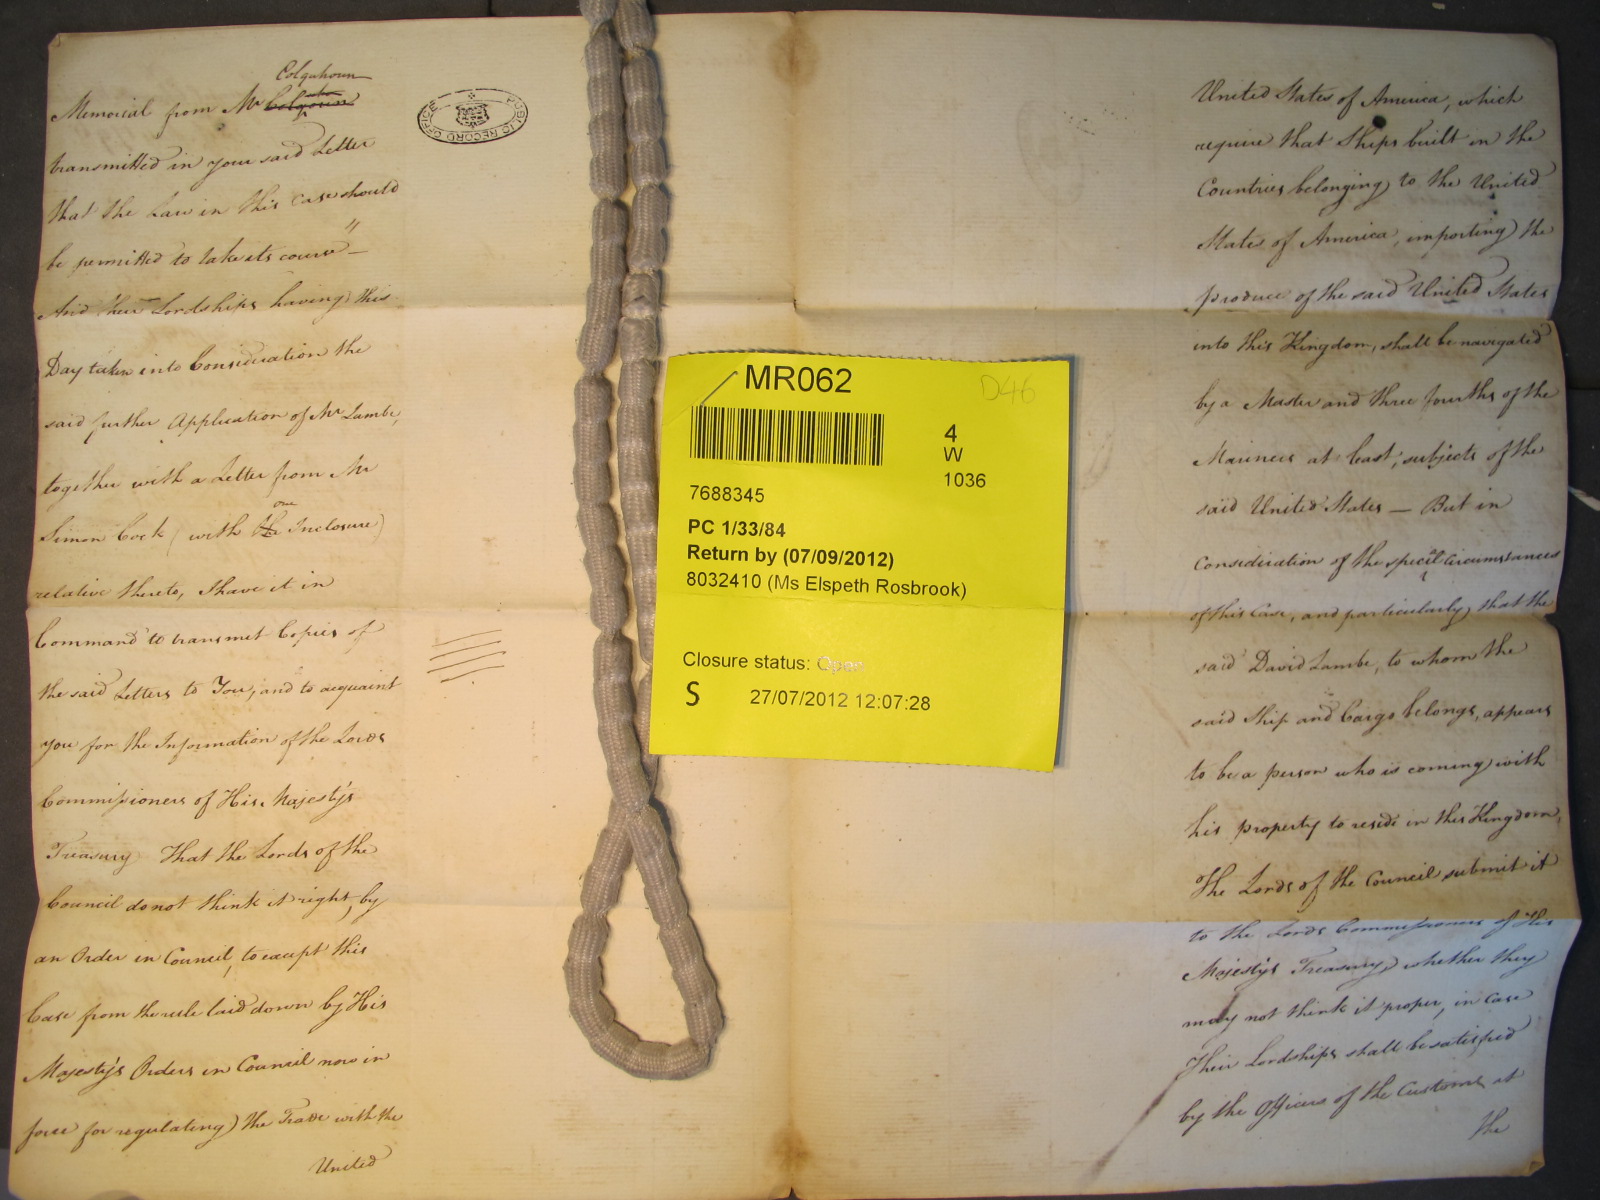 Colquhoun
Memorial from Mr Colqoun
transmitted in your said Letter
that the Law in this case should
be permitted to take its course" —
And their Lordships having this
Day taken into Consideration the
said further Application of Mr Lambe,
together with a Letter from Mr
one
Simon Cock (with the Inclosure)
relative thereto, I have it in
Command to transmit Copies of
the said Letters to You, and to acquaint
you for the Information of the Lords
Commissioners of His Majesty's
Treasury That the Lords of the
Council do not think it right, by
an Order in Council, to except this
Case from the rule laid down by His
Majesty's Orders in Council now in
force for regulating the Trade with the
United
PUBLIC RECORD OFFICE
MR062
D46
4
W
1036
7688345
PC 1/33/84
Return by (07/09/2012)
8032410 (Ms Elspeth Rosbrook)
Closure status: Open
S 27/07/2012 12:07:28
United States of America, which
require that Ships built in the
Countries belonging to the United
States of America, importing the
produce of the said United States
into this Kingdom, shall be navigated
by a Master and three fourths of the
Mariners at least, subjects of the
said United States — But in
Consideration of the special Circumstances
of this Case, and particularly that the
said David Lambe, to whom the
said Ship and Cargo belongs, appears
to be a person who is coming with
his property to reside in this Kingdom,
The Lords of the Council submit it
to the Lords Commissioners of His
Majesty's Treasury, whether they
may not think it proper, in case
Their Lordships shall be satisfied
by the Officers of the Customs at
the